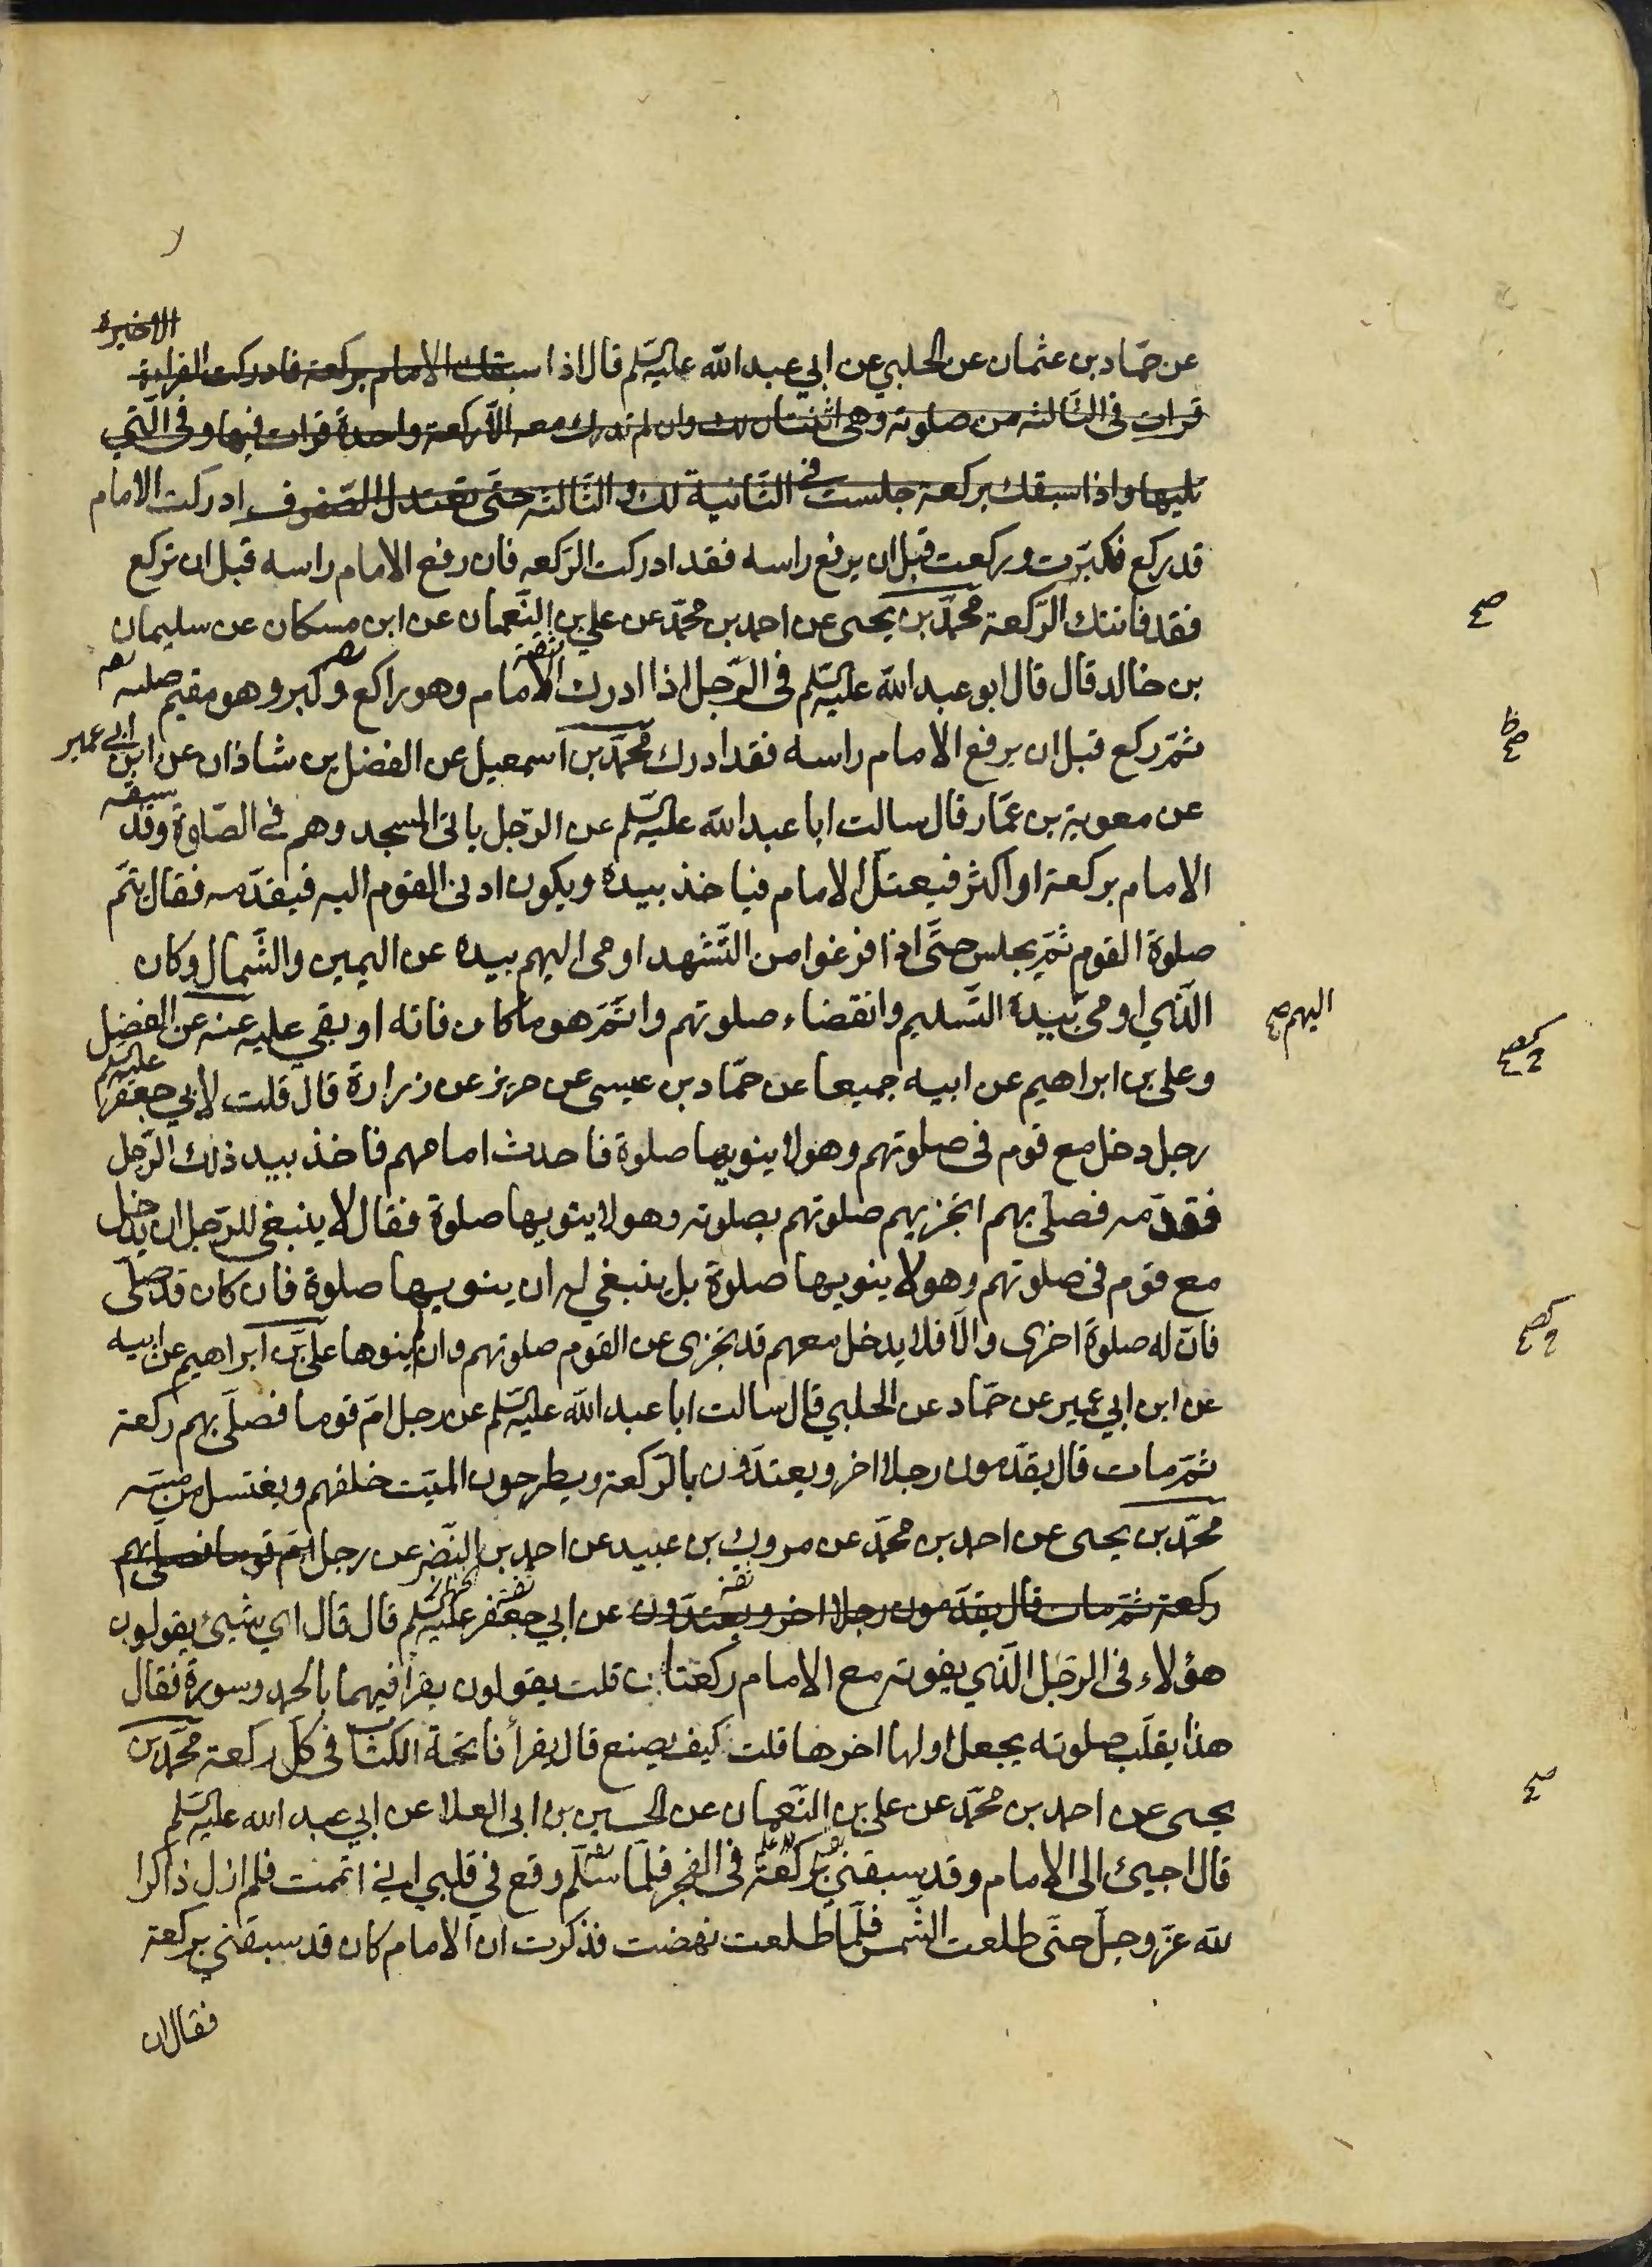 الاخيرة
عن حمّاد بن عثمان عن الحلبي عن ابي عبد الله عليه السّلم قال اذا سبقك الامام بركعة فادركت القراءة
قرات في الثّالثة من صلوته وهي اثنتان لك وان لم تدرك معه الّا ركعة واحدة قرات فيها وفي الّتي
تليها واذا سبقك بركعة جلست في الثّانية لك و الثّالثة حتّى تعتدل الصّفوف ادركت الامام
قد ركع فكبّرت وركعت قبل ان يرفع راسه فقد ادركت الرّكعه فان رفع الامام راسه قبل ان تركع
فقد فاتتك الرّكعة محمّد بن يحيى عن احمد بن محمّد عن علي بن النّعمان عن ابن مسكان عن سليمان
صح
بن خالد قال قال ابو عبد الله عليه السّلم في الرّجل اذا ادرك الامام وهو راكع وكبر وهو مقيم صلبه
ثمّ ركع قبل ان يرفع الامام راسه فقد ادرك محمّد بن اسمعيل عن الفضل بن شاذان عن ابن ابي عمير
عن معوية بن عمّار قال سالت ابا عبد الله عليه السّلم عن الرّجل ياتي المسجد وهم في الصّلوة وقد سبقه
الامام بركعة او اكثر فيعتلّ الامام فياخذ بيده ويكون ادنى القوم اليه فيقدّمه فقال يتمّ
صلوة القوم ثمّ يجلس حتّى اذا فرغوا من التّشهد اومى اليهم بيده عن اليمين والشّمال وكان
الّذي اومى بيده التّسليم وانقضاء صلوتهم واتمّ هو ما كان فاته او بقي عليه عنه عن الفضل
اليهم
وعلي بن ابراهيم عن ابيه جميعا عن حمّاد بن عيسى عن حريز عن زرارة قال قلت لابي جعفر عليه السّلم
رجل دخل مع قوم في صلوتهم وهو لا ينويها صلوة فاحدث امامهم فاخذ بيد ذلك الرّجل
فقدّمه فصلّى بهم اتجزيهم صلوتهم بصلوته وهو لا ينويها صلوة فقال لا ينبغي للرّجل ان يدخل
مع قوم في صلوتهم وهو لا ينويها صلوة بل ينبغي له ان ينويها صلوة فان كان قد صلّى
فانّ له صلوة اخرى والّا فلا يدخل معهم قد تجزى عن القوم صلوتهم وان لم ينوها علي بن ابراهيم عن ابيه
عن ابن ابي عمير عن حمّاد عن الحلبي قال سالت ابا عبد الله عليه السّلم عن رجل امّ قوما فصلّى بهم ركعة
ثمّ مات قال يقدّمون رجلا اخر ويعتدّون بالرّكعة ويطرحون الميّت خلفهم ويغتسل من مسّه
محمّد بن يحيى عن احمد بن محمّد عن مروك بن عبيد عن احمد بن النّضر عن رجل امّ قوما فصلّى بهم
ركعة ثمّ مات قال يقدّمون رجلا اخر ويعتدّون عن ابي جعفر عليه السّلم قال قال اي شيئ يقولون
هؤلاء في الرّجل الّذي يفوته مع الامام ركعتان قلت يقولون يقرا فيهما بالحمد وسورة فقال
هذا يقلّب صلوته يجعل اولها اخرها قلت كيف يصنع قال يقرأ فاتحة الكتاب في كلّ ركعة محمّد بن
يحيى عن احمد بن محمّد عن علي بن النّعمان عن الحسين بن ابي العلا عن ابي عبد الله عليه السّلم
قال اجيئ الى الامام وقد سبقني بركعة في الفجر فلمّا سلّم وقع في قلبي اني اتممت فلم ازل ذاكرا
لله عزّ وجلّ حتّى طلعت الشّمس فلمّا طلعت نهضت فذكرت انّ الامام كان قد سبقني بركعة
فقال ان